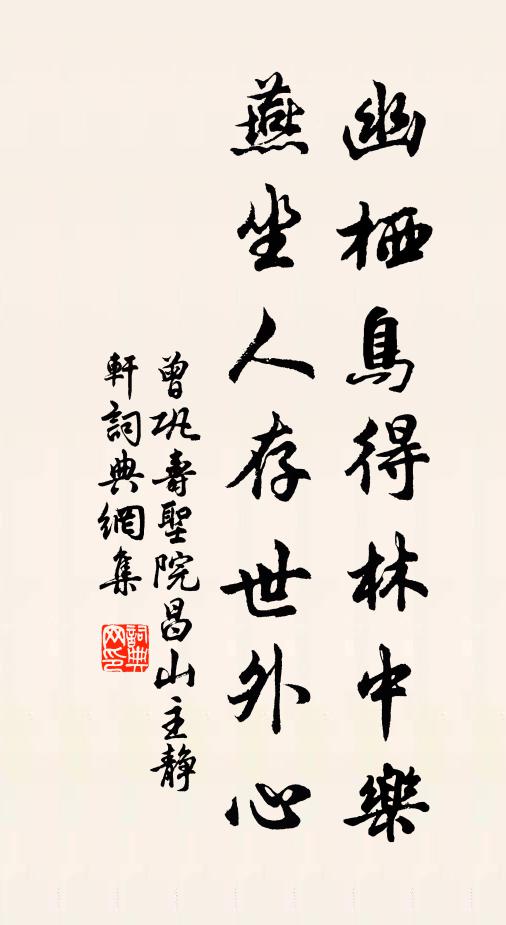 幽栖鳥得林中樂
燕坐人存世外心
曾巩壽聖院昌山主静
軒詞典網集
詞典
网印